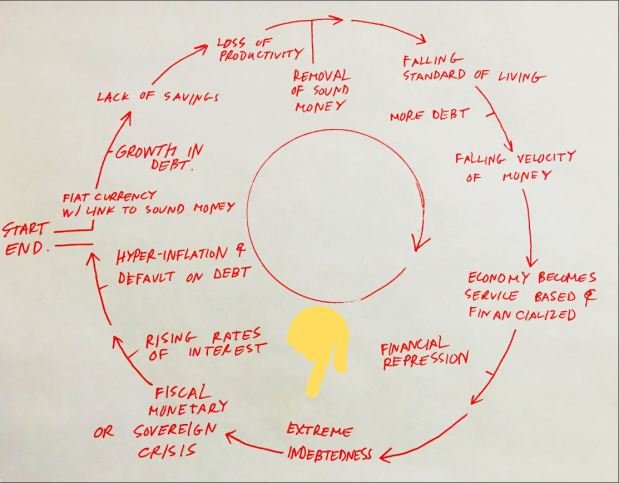 START
END.
FIAT CURRENCY
W/ LINK TO SOUND MONEY
GROWTH IN
DEBT.
LACK OF SAVINGS
LOSS OF
PRODUCTIVITY
REMOVAL
OF SOUND
MONEY
FALLING
STANDARD OF LIVING
MORE DEBT
FALLING VELOCITY
OF MONEY
ECONOMY BECOMES
SERVICE BASED &
FINANCIALIZED
FINANCIAL
REPRESSION
EXTREME
INDEBTEDNESS
FISCAL
MONETARY
OR SOVEREIGN
CRISIS
RISING RATES
OF INTEREST
HYPER-INFLATION &
DEFAULT ON DEBT